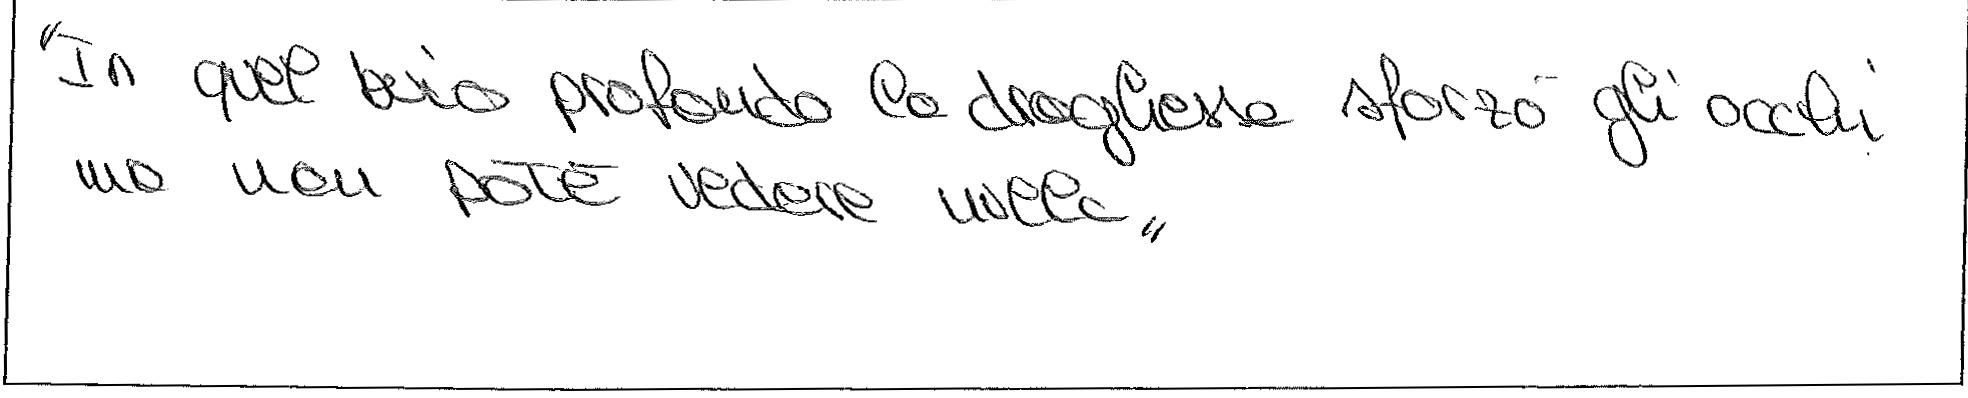 "In quel buio profondo la draghessa sforzò gli occhi
ma non potè vedere nulla"